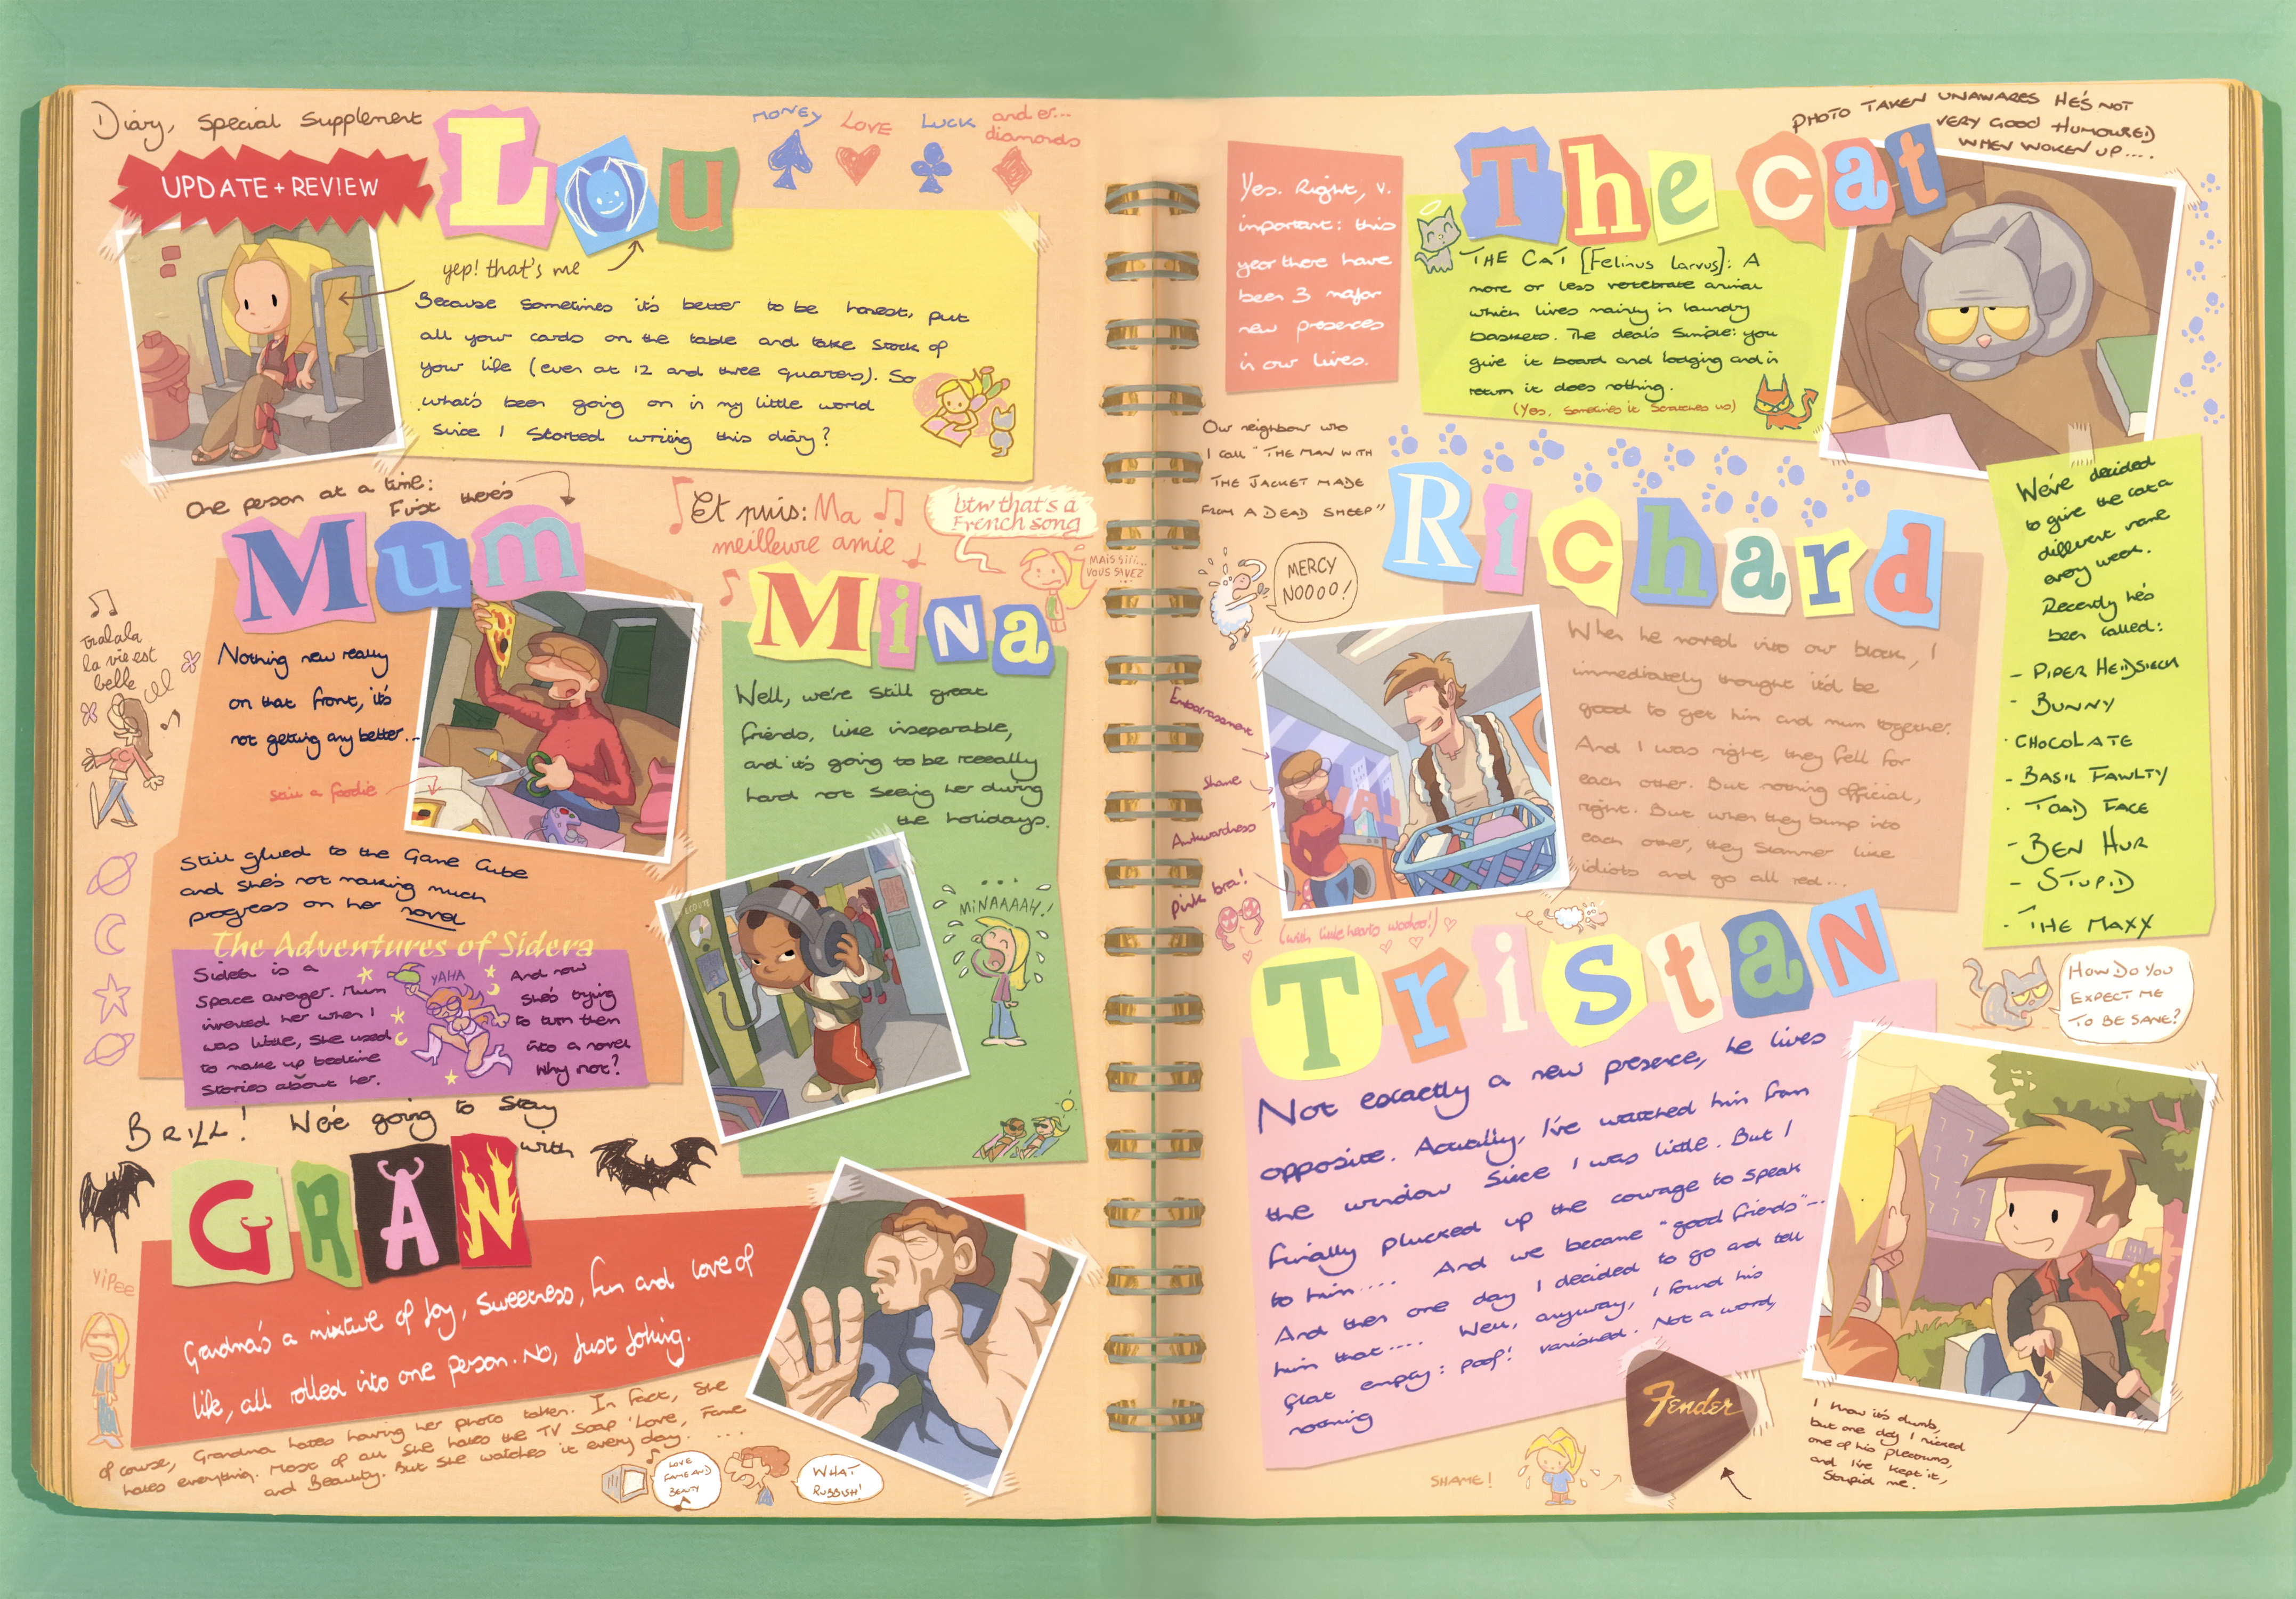 Diary, special supplement
UPDATE + REVIEW
Lou
MONEY
LOVE
LUCK
and er...
diamonds
yep! that's me
Because sometimes it's better to be honest, put
all your cards on the table and take stock of
your life (even at 12 and three quarters). So
what's been going on in my little world
since I started writing this diary?
One person at a time:
First there's
Mum
tralala
la vie est
belle
Nothing new really
on that front, it's
not getting any better...
still a foodie
Still glued to the Game Cube
and she's not making much
progress on her novel
The Adventures of Sidera
Sidera is a
space avenger. Mum
invented her when I
was little, she used
to make up bedtime
stories about her.
YAHA
And now
she's trying
to turn them
into a novel
Why not?
Et puis: Ma
meilleure amie
btw that's a
French song
MAIS SIII...
VOUS SAVEZ
...
MiNa
Well, we're still great
friends, like inseparable,
and it's going to be reeeally
hard not seeing her during
the holidays.
...
MINAAAAH!
BRILL! We're going to stay
with
GRAN
YIPEE
Grandma's a mixture of joy, sweetness, fun and love of
life, all rolled into one person. No, just joking.
Of course, Grandma hates having her photo taken. In fact, she
hates everything. Most of all she hates the TV soap 'Love, Fame
and Beauty. But she watches it every day. ....
LOVE
FAME AND
BEAUTY
WHAT
RUBBISH!
Yes. Right, v.
important: this
year there have
been 3 major
new presences
in our lives.
The Cat
PHOTO TAKEN UNAWARES HE'S NOT
VERY GOOD HUMOURED
WHEN WOKEN UP....
THE CAT [Felinus Larvus]: A
more or less vertebrate animal
which lives mainly in laundry
baskets. The deal's simple: you
give it board and lodging and in
return it does nothing.
(Yes, sometimes it scratches us)
We've decided
to give the cat a
different name
every week.
Recently he's
been called:
- PIPER HEIDSIECK
- BUNNY
- CHOCOLATE
- BASIL FAWLTY
- TOAD FACE
- BEN HUR
- STUPID
- THE MAXX
HOW DO YOU
EXPECT ME
TO BE SANE?
Our neighbour who
I call "THE MAN WITH
THE JACKET MADE
FROM A DEAD SHEEP"
Richard
MERCY
NOOOO!
Embarrassment
Shame
Awkwardness
Pink bra!
(with little hearts woooo!)
When he moved into our block, I
immediately thought it'd be
good to get him and mum together.
And I was right, they fell for
each other. But nothing official,
right. But when they bump into
each other, they stammer like
idiots and go all red...
TristaN
Not exactly a new presence, he lives
opposite. Actually, I've watched him from
the window since I was little. But I
finally plucked up the courage to speak
to him.... And we became "good friends"...
And then one day I decided to go and tell
him that.... Well, anyway, I found his
flat empty: poof! vanished. Not a word,
nothing
Fender
SHAME!
I know it's dumb,
but one day I nicked
one of his plectrums,
and I've kept it,
Stupid me.